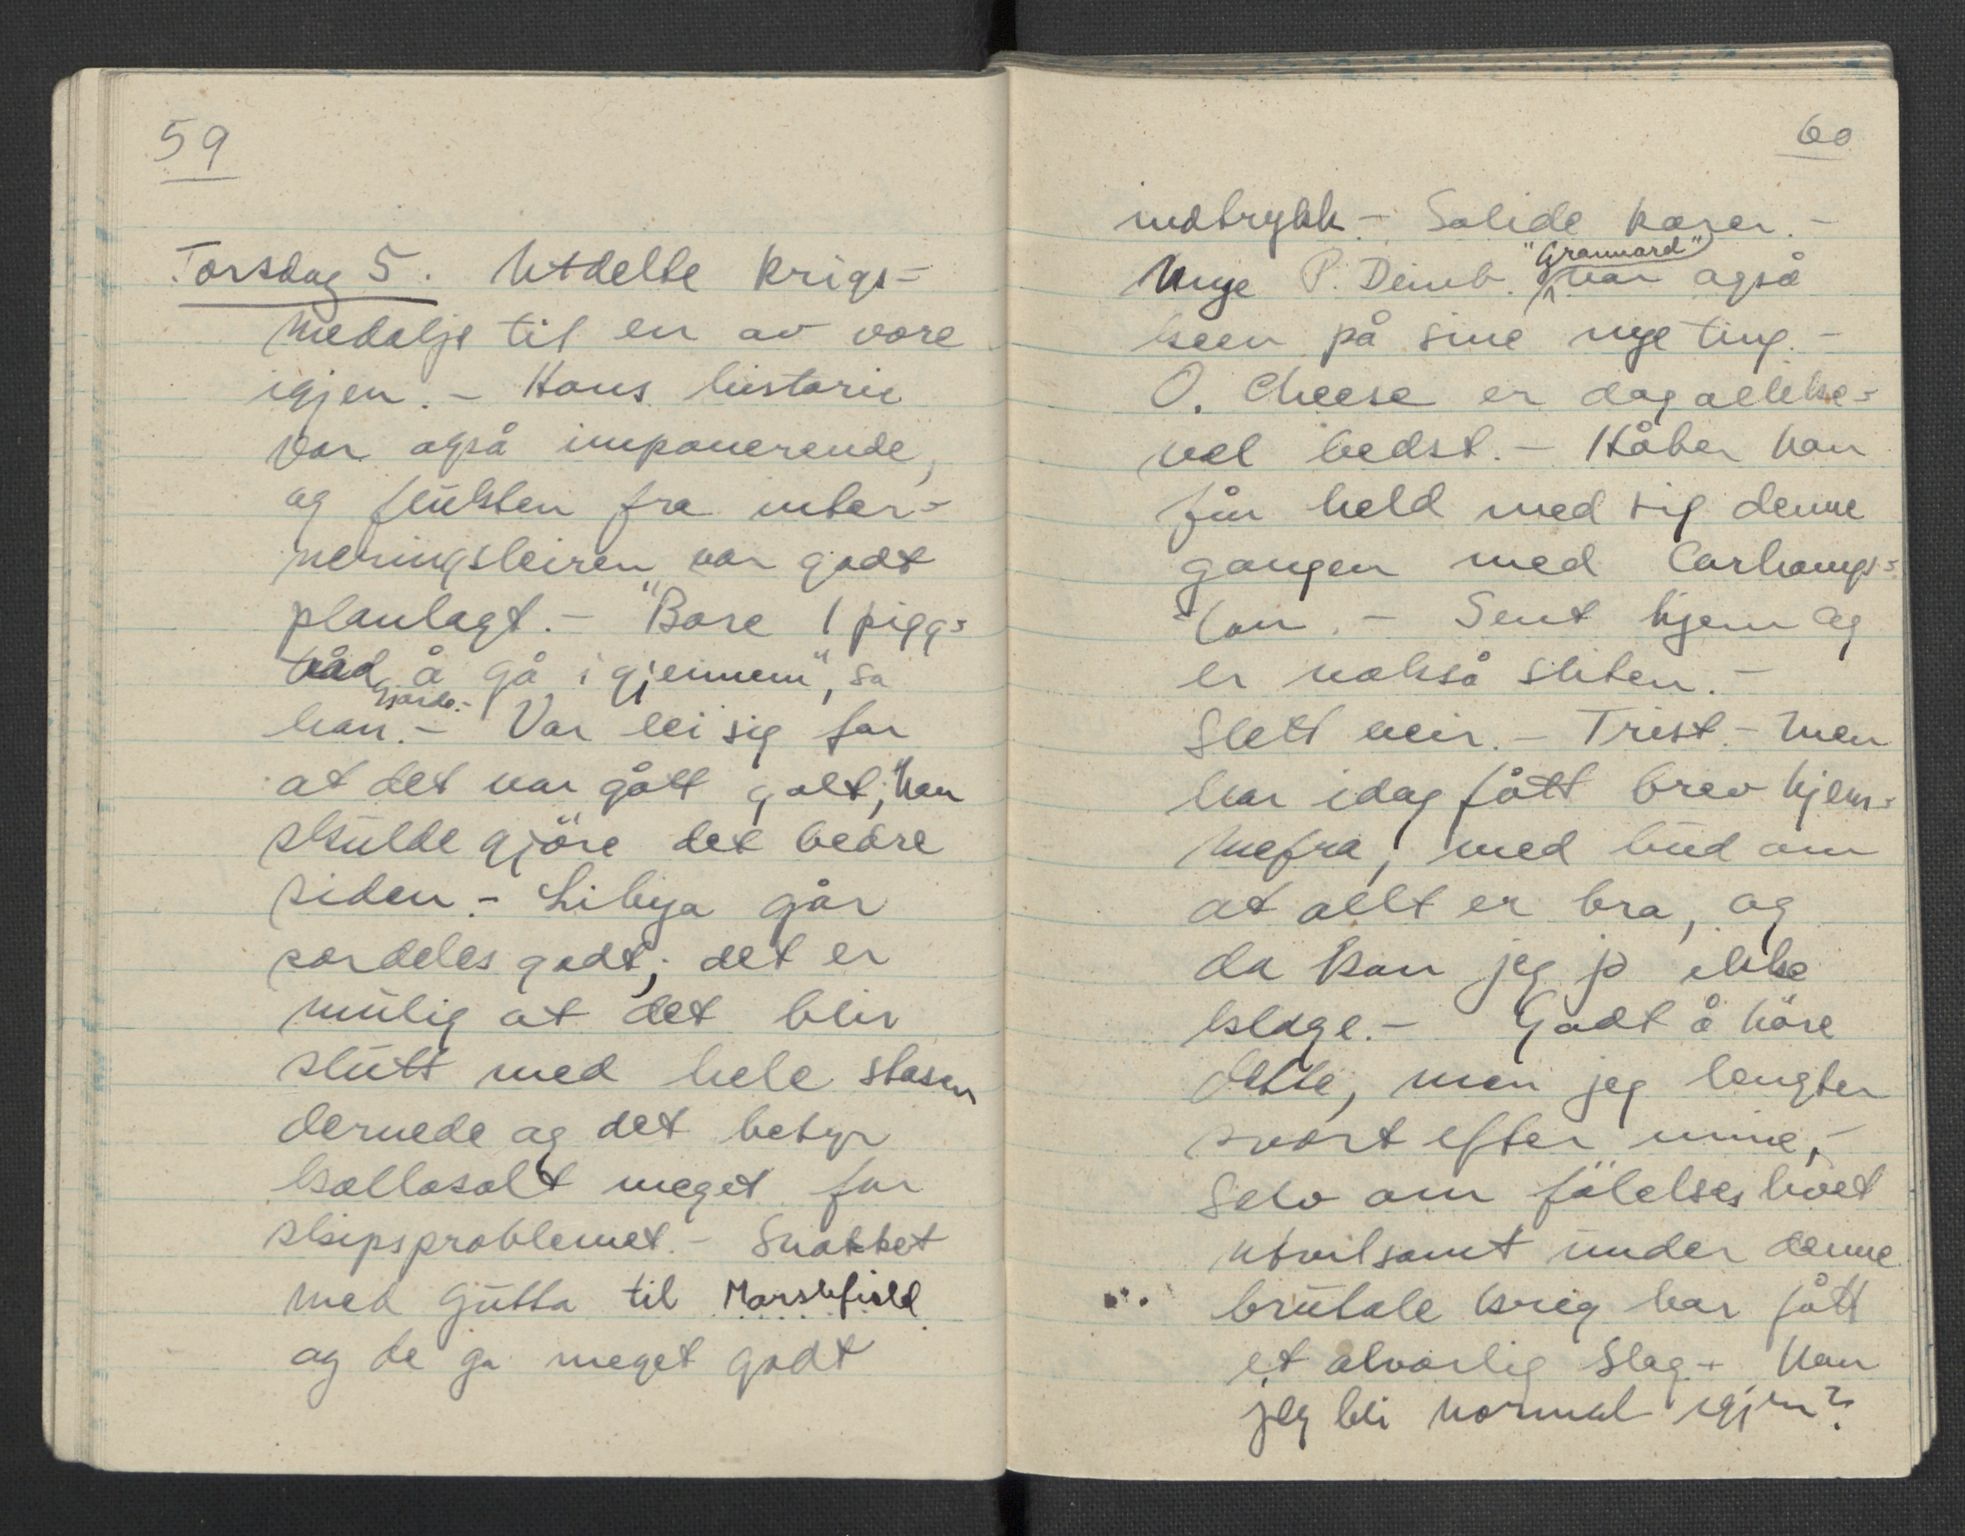 59
Torsdag 5. Utdelte krigs=
medalje til en av våre
igjen. - Hans historie
var også imponerende,
og flukten fra inter=
neringsleiren var godt
planlagt. - "Bare 1 pigg=
tråd å gå igjennem", sa
gjærde. -
han. - Var lei sig for
at det var gått galt, han
skulde gjöre det bedre
siden. - Libya går
særdeles godt; det er
mulig at det blir
slutt med hele stasen
dernede og det betyr
kollosalt meget for
skipsproblemet. - Snakket
med gutta til Marshfield
og de ga meget godt
60
indtrykk. - Solide karer. -
"Grannard"
Unge P. Deinb. var også
keen på sine nye ting. -
O. Cheese er dog allike=
vel bedst. - Håber han
får held med sig denne
gangen med Carhamp=
ton. - Sent hjem og
er nokså sliten. -
Slett veir. - Trist. - Men
har idag fått brev hjem=
mefra, med bud om
at allt er bra, og
da kan jeg jo ikke
klage. - Godt å höre
dette, men jeg lengter
svært efter mine, -
Selv om fölelseslivet
utvilsomt under denne
brutale krig har fått
et alvorlig slag. - Kan
jeg bli normal igjen?